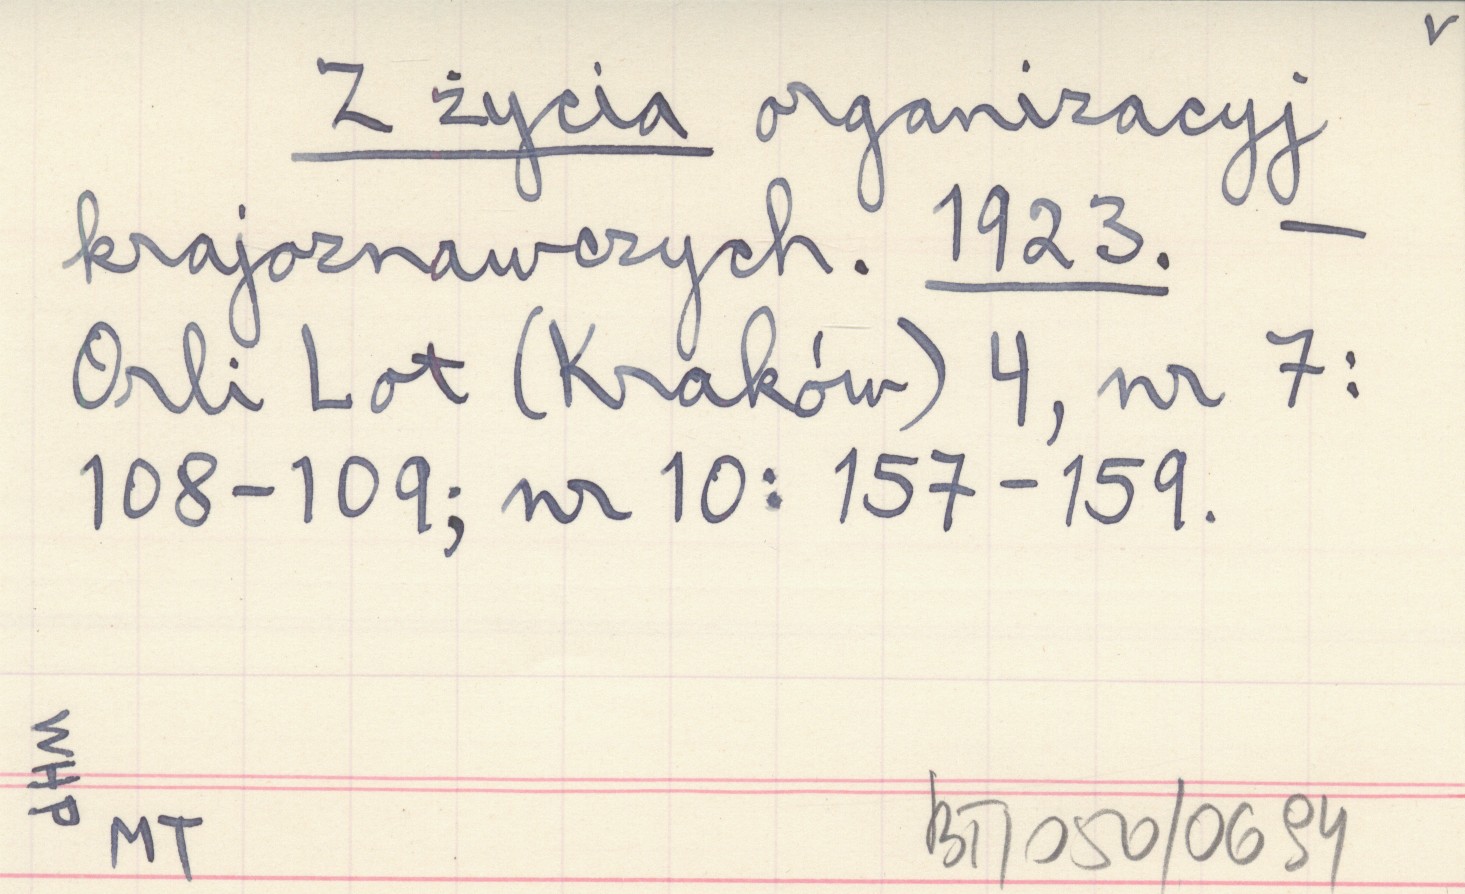 v
Z życia organizacyj
krajoznawczych. 1923. —
Orli Lot (Kraków) 4, nr 7:
108-109; nr 10: 157-159.
WHP
MT
BT/050/0694